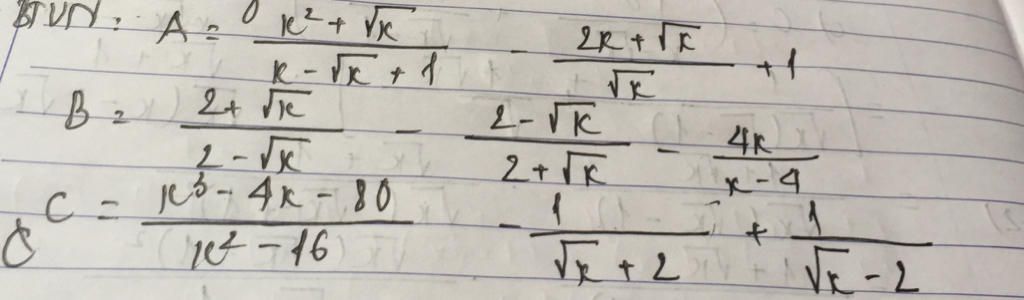 BTVN: A = (x² + √x)/(x - √x + 1) - (2x + √x)/√x + 1
B = (2 + √x)/(2 - √x) - (2 - √x)/(2 + √x) - 4x/(x - 4)
C = (x³ - 4x - 80)/(x² - 16) - 1/(√x + 2) + 1/(√x - 2)